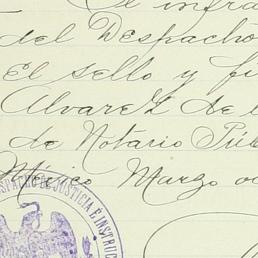 El infra
del Despacho
El sello y fi
Alvarez de l
de Notario Púb
México Marzo oc
DESPACHO DE JUSTICIA É INSTRUC